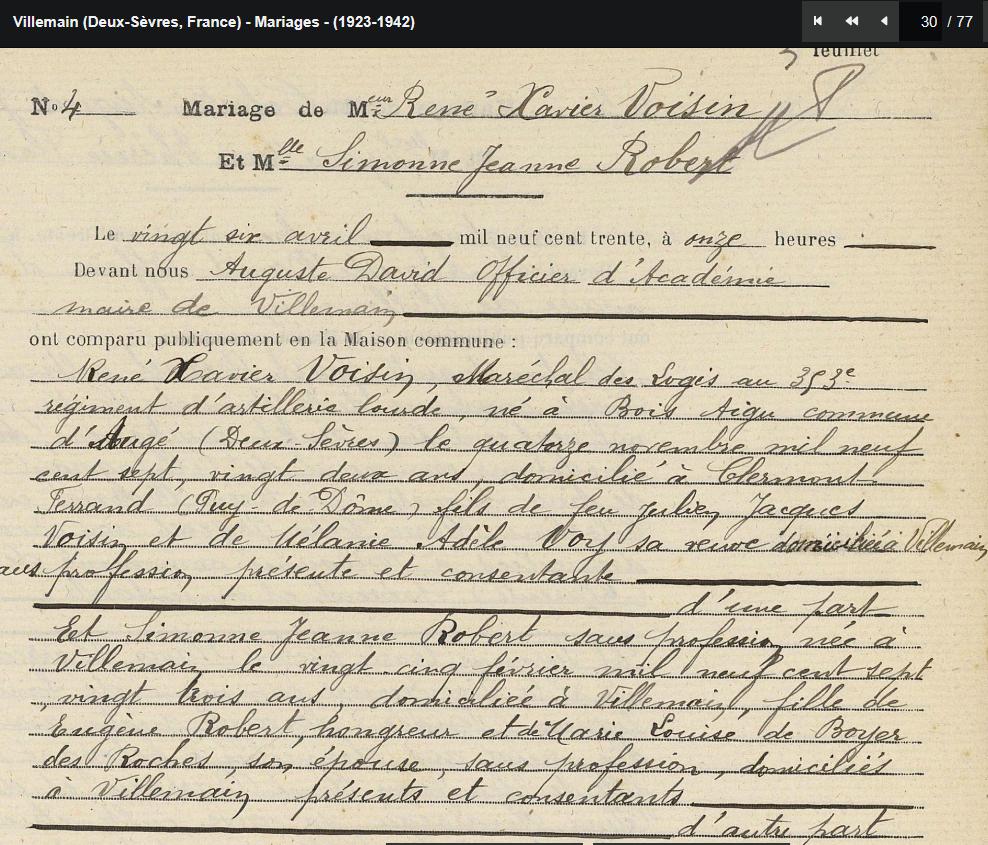 Villemain (Deux-Sèvres, France) - Mariages - (1923-1942)
30 / 77
feuillet
No 4 Mariage de Meur René Xavier Voisin
Et Mlle Simonne Jeanne Robert
Le vingt six avril mil neuf cent trente, à onze heures
Devant nous Auguste David Officier d'Académie
maire de Villemain
ont comparu publiquement en la Maison commune :
René Xavier Voisin, Maréchal des Logis au 353e
régiment d'artillerie lourde, né à Bois Aigu commune
d'Augé (Deux Sèvres) le quatorze novembre mil neuf
cent sept, vingt deux ans, domicilié à Clermont-
Ferrand (Puy-de-Dôme) fils de feu Julien Jacques
Voisin et de Mélanie Adèle Voy sa veuve domiciliée à Villemain
sans profession présente et consentante
d'une part
Et Simonne Jeanne Robert sans profession née à
Villemain le vingt cinq février mil neuf cent sept
, vingt trois ans, domiciliée à Villemain, fille de
Eugène Robert, hongreur et de Marie Louise de Boyer
des Roches, son épouse, sans profession, domiciliés
à Villemain présents et consentants
d'autre part